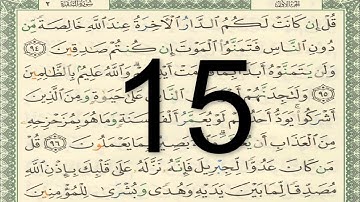 قُلْ إِن كَانَتْ لَكُمُ الدَّارُ الْآخِرَةُ عِندَ اللَّهِ خَالِصَةً مِّن
دُونِ النَّاسِ فَتَمَنَّوُا الْمَوْتَ إِن كُنتُمْ صَادِقِينَ ٩٤
وَلَن يَتَمَنَّوْهُ أَبَدًا بِمَا وَاللَّهُ عَلِيمٌ بِالظَّالِمِينَ
٩٥ وَلَتَجِدَنَّهُمْ النَّاسِ عَلَىٰ حَيَاةٍ وَمِنَ الَّذِينَ
أَشْرَكُوا يَوَدُّ أَحَدُهُمْ لَوْ يُعَمَّرُ أَلْفَ سَنَةٍ وَمَا هُوَ بِمُزَحْزِحِهِ
مِنَ الْعَذَابِ أَن بَصِيرٌ بِمَا يَعْمَلُونَ ٩٦ قُلْ
مَن كَانَ عَدُوًّا لِّجِبْرِيلَ فَإِنَّهُ نَزَّلَهُ عَلَىٰ قَلْبِكَ بِإِذْنِ اللَّهِ
مُصَدِّقًا لِّمَا بَيْنَ يَدَيْهِ وَهُدًى وَبُشْرَىٰ لِلْمُؤْمِنِينَ
15